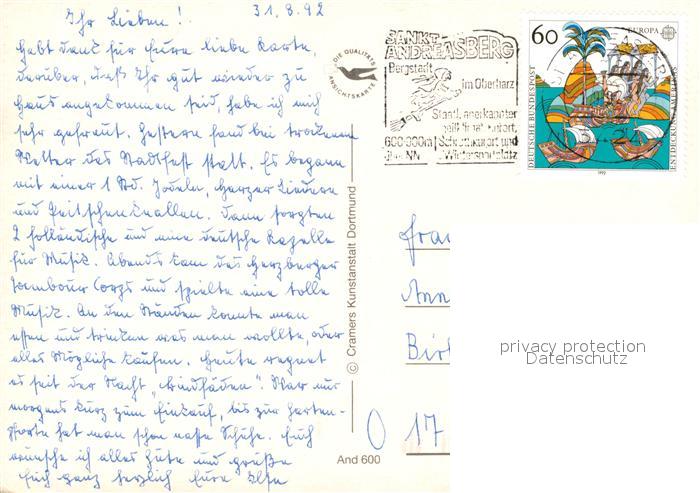 Ihr Lieben! 31.8.92
Habt dank für Eure liebe Karte,
darüber, daß Ihr gut wieder zu
Haus angekommen seid, habe ich mich
sehr gefreut. Gestern fand bei trockenem
Wetter das Stadtfest statt. Es begann
mit einer 1 Std. Jodeln, Harzer Liedern
und Peitschenknallen. Dann sorgten
2 holländische und eine deutsche Kapelle
für Musik. Abends kam das Herzberger
Tambour Corps und spielte eine tolle
Musik. An den Ständen konnte man
essen und trinken was man wollte, oder
alles Mögliche kaufen. Heute regnet
es seit der Nacht „Bindfäden". War nur
morgens kurz zum Einkauf, bis zur Garten-
pforte hat man schon nasse Schuhe. Euch
wünsche ich alles Gute und grüße
Euch ganz herzlich Eure Ilse
DIE QUALITÄTS
ANSICHTSKARTE
© Cramers Kunstanstalt Dortmund
And 600
SANKT-
ANDREASBERG
Bergstadt
im Oberharz
Staatl. anerkannter
heilklimat. Kurort,
600-900m Schulkurort und
über NN Wintersportplatz
60
EUROPA
DEUTSCHE BUNDESPOST
ENTDECKUNG AMERIKAS
1992
Frau
Ann
Birk
O 17
privacy protection
Datenschutz